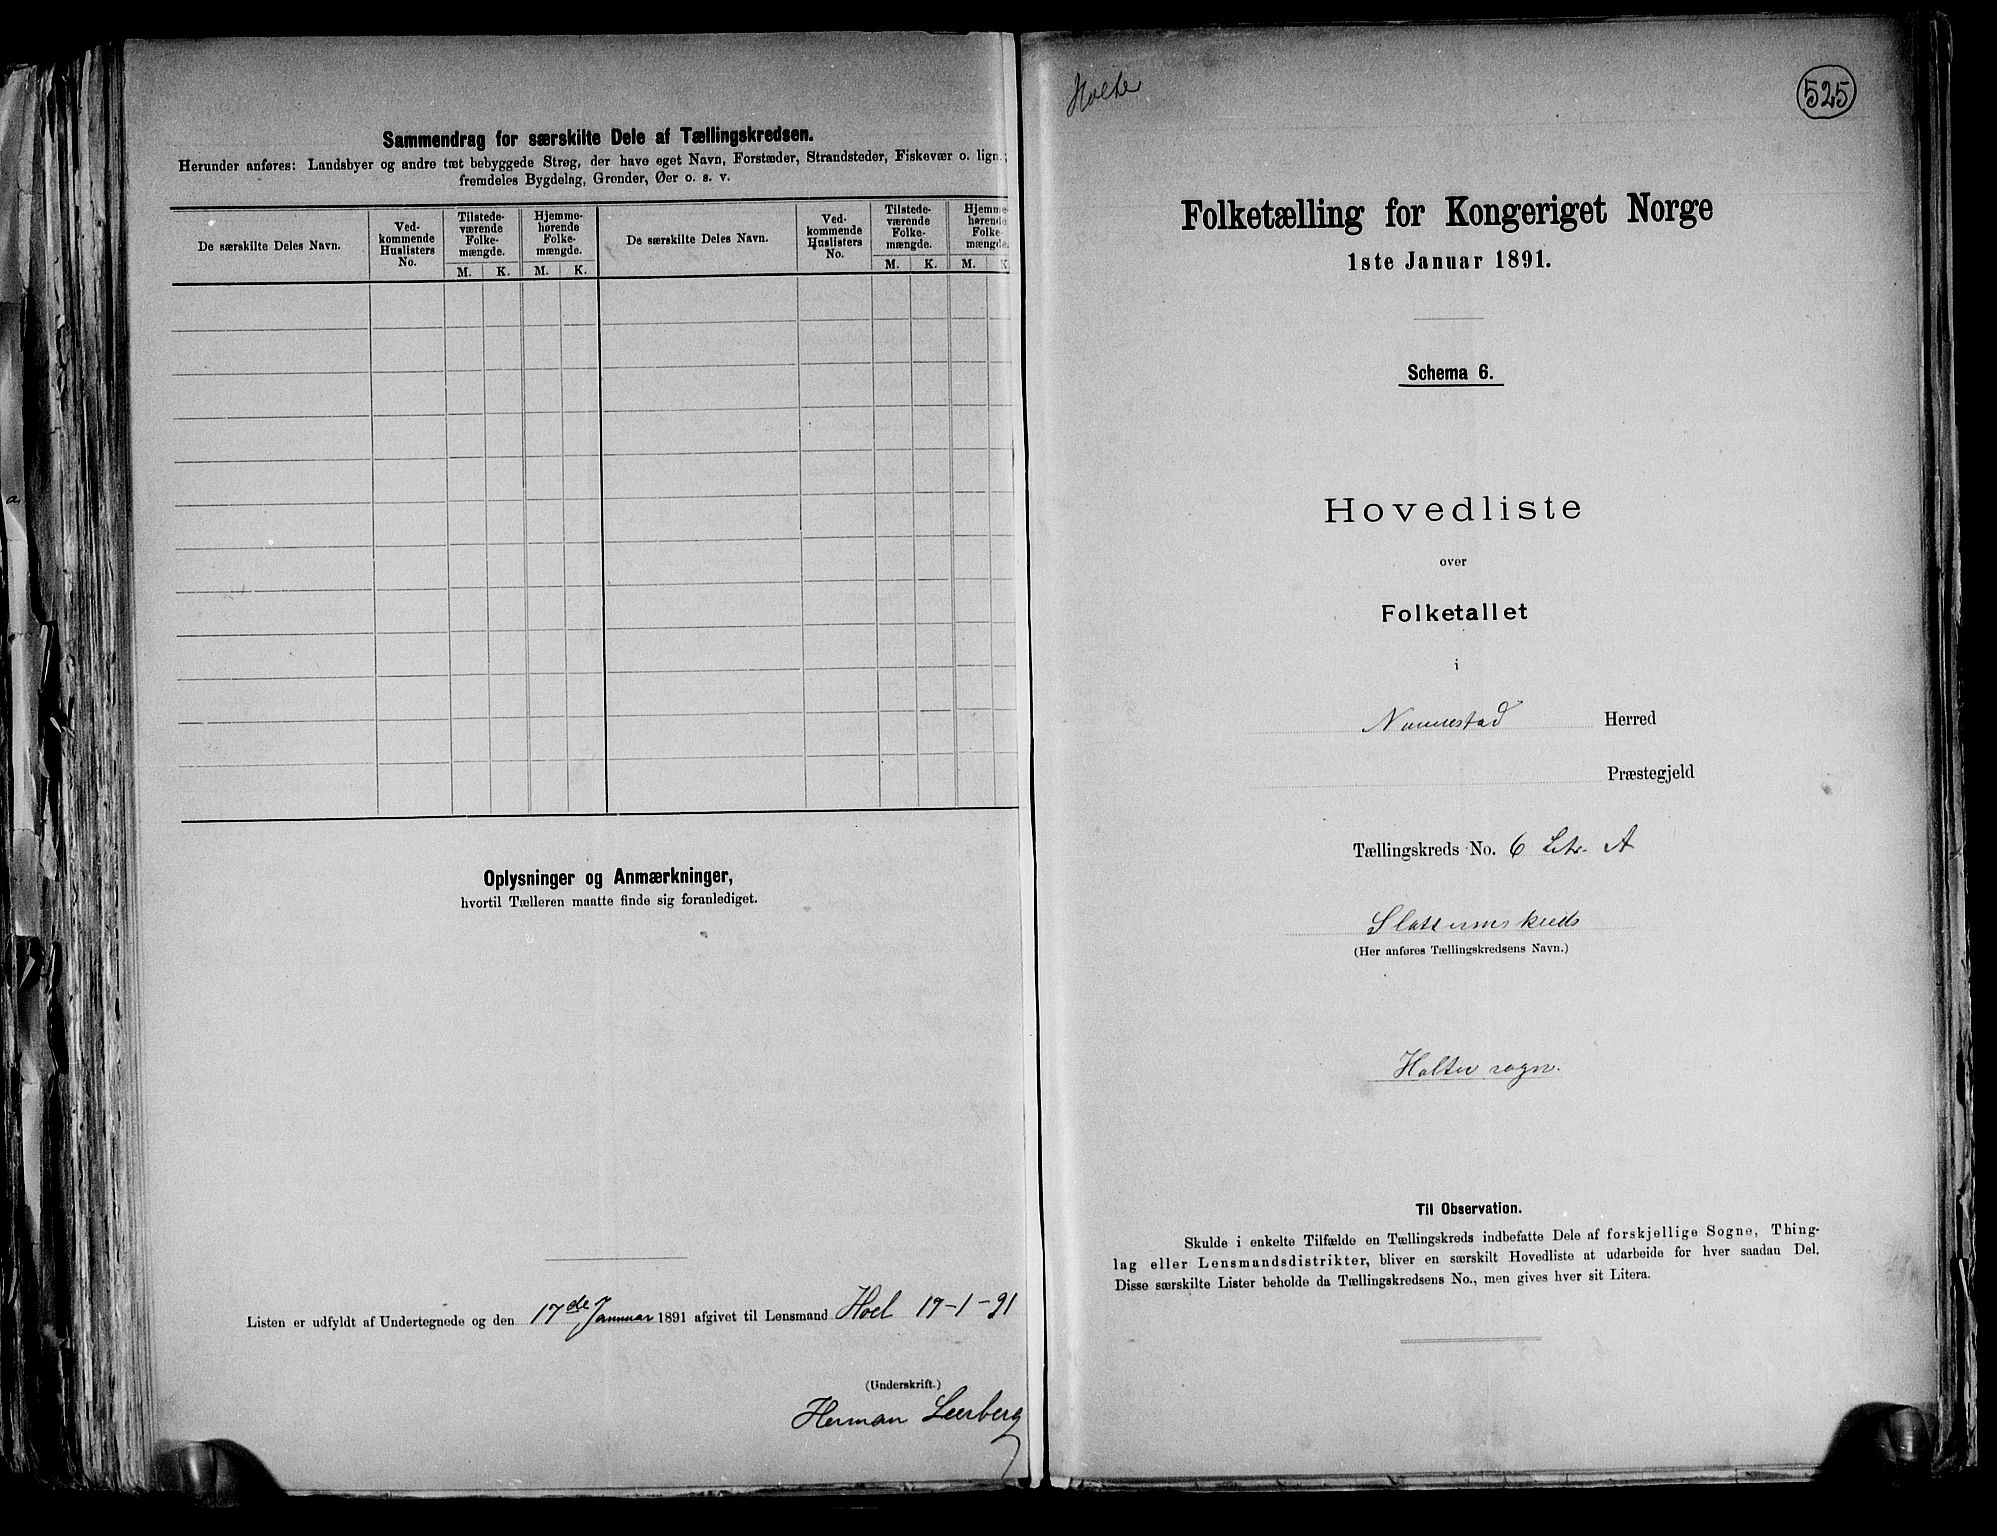 Sammendrag for særskilte Dele af Tællingskredsen.
Herunder anføres: Landsbyer og andre tæt bebyggede Strøg, der have eget Navn, Forstæder, Strandsteder, Fiskevær o. lign.;
fremdeles Bygdelag, Grender, Øer o. s. v.
De særskilte Deles Navn.
Ved-
kommende
Huslisters
No.
Tilstede-
værende
Folke-
mængde.
M. K.
Hjemme-
hørende
Folke-
mængde.
M. K.
De særskilte Deles Navn.
Ved-
kommende
Huslisters
No.
Tilstede-
værende
Folke-
mængde.
M. K.
Hjemme-
hørende
Folke-
mængde.
M. K
Oplysninger og Anmærkninger,
hvortil Tælleren maatte finde sig foranlediget.
Listen er udfyldt af Undertegnede og den 17de Januar 1891 afgivet til Lensmand Hoel 19-1-91
(Underskrift.)
Herman Leerberg
Holter
525
Folketælling for Kongeriget Norge
1ste Januar 1891.
Schema 6.
Hovedliste
over
Folketallet
i
Nannestad Herred
Præstegjeld
Tællingskreds No. 6 Litr. A
Slattumskreds
(Her anføres Tællingskredsens Navn.)
Holter sogn.
Til Observation.
Skulde i enkelte Tilfælde en Tællingskreds indbefatte Dele af forskjellige Sogne, Thing-
lag eller Lensmandsdistrikter, bliver en særskilt Hovedliste at udarbeide for hver saadan Del.
Disse særskilte Lister beholde da Tællingskredsens No., men gives hver sit Litera.